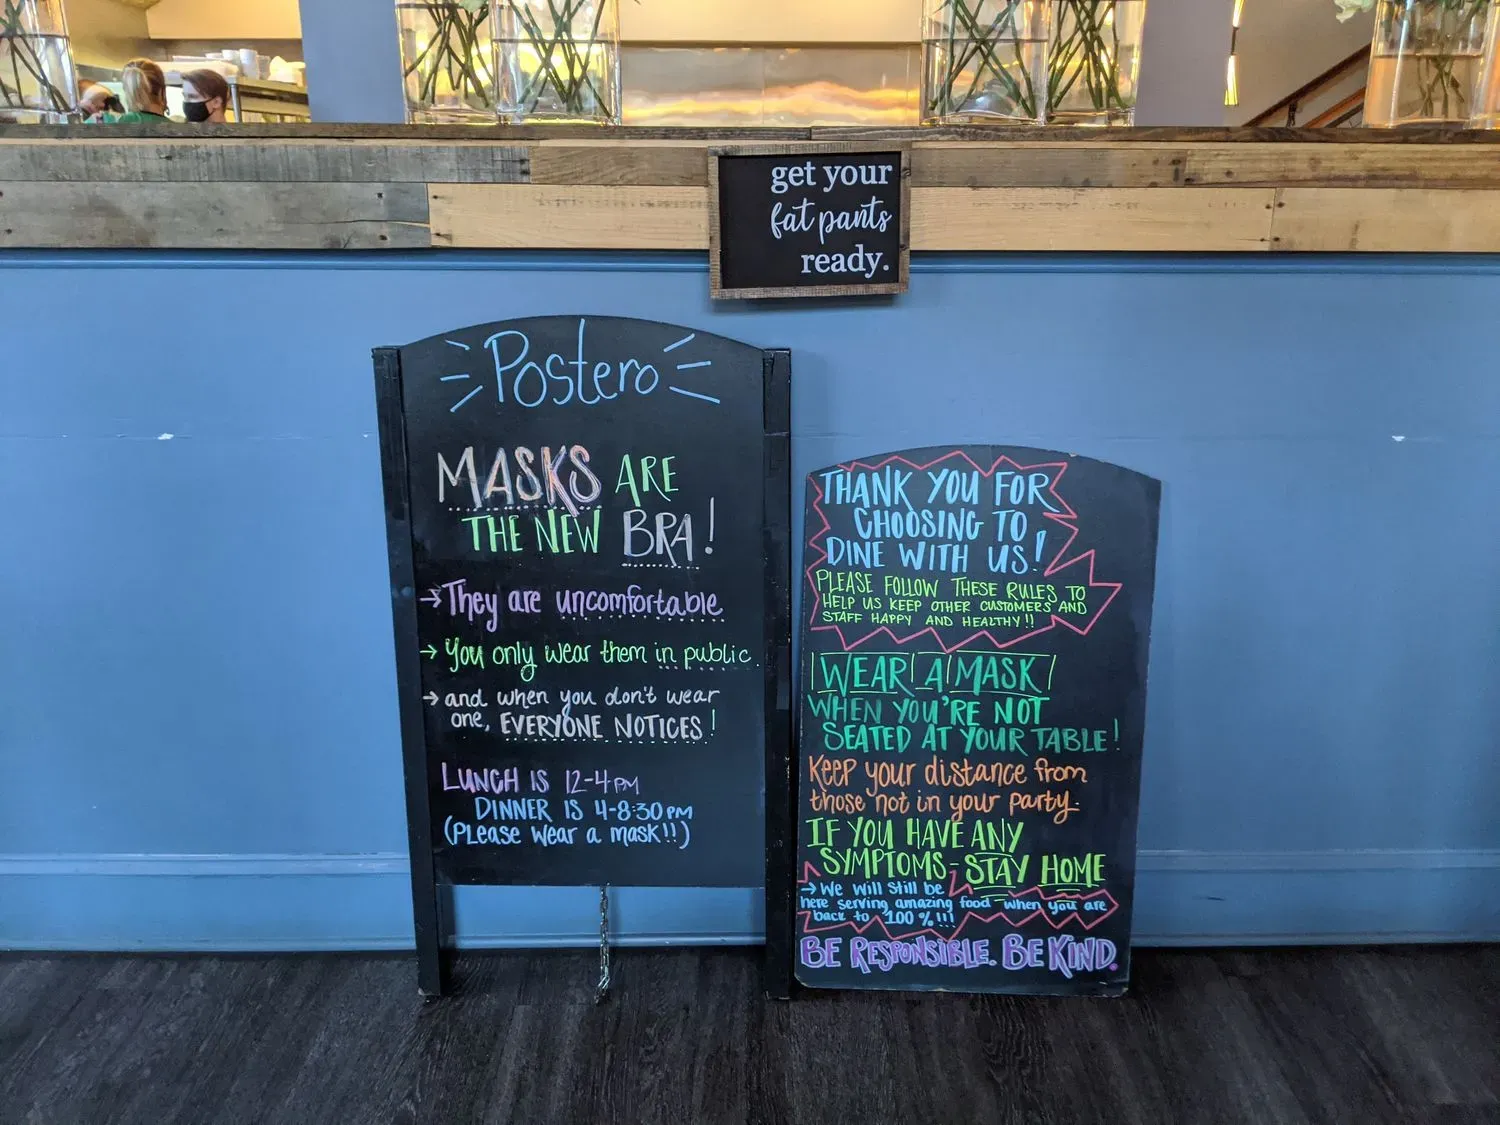 get your
fat pants
ready.
Postero
MASKS ARE
THE NEW BRA!
→ They are uncomfortable
→ You only wear them in public.
→ and when you don't wear
one, EVERYONE NOTICES!
LUNCH IS 12-4PM
DINNER IS 4-8:30PM
(PLease wear a mask!!)
THANK YOU FOR
CHOOSING TO
DINE WITH US!
PLEASE FOLLOW THESE RULES TO
HELP US KEEP OTHER CUSTOMERS AND
STAFF HAPPY AND HEALTHY!!
WEAR A MASK
WHEN YOU'RE NOT
SEATED AT YOUR TABLE!
Keep your distance from
those not in your party.
IF YOU HAVE ANY
SYMPTOMS-STAY HOME
→ We will still be
here serving amazing food when you are
back to 100%!!!
BE RESPONSIBLE. BE KIND.